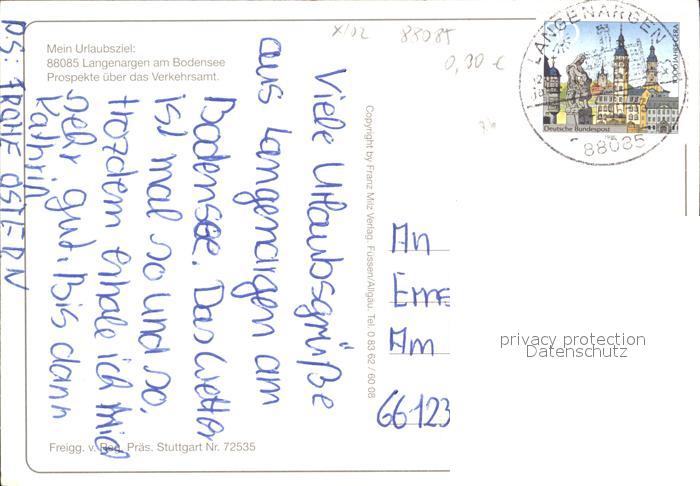 Mein Urlaubsziel:
88085 Langenargen am Bodensee
Prospekte über das Verkehrsamt.
X/02
88085
0,30 €
LANGENARGEN
88085
1000 JAHRE GERA
Deutsche Bundespost
Viele Urlaubsgrüße
aus Langenargen am
Bodensee. Das Wetter
ist mal so und so,
trozdem erhole ich mich
sehr gut. Bis dann
Kathrin
P.S: FROHE OSTERN
Copyright by Franz Milz Verlag, Füssen/Allgäu. Tel. 0 83 62 / 60 08
An
Am
66123
privacy protection
Datenschutz
Freigg. v. Reg. Präs. Stuttgart Nr. 72535